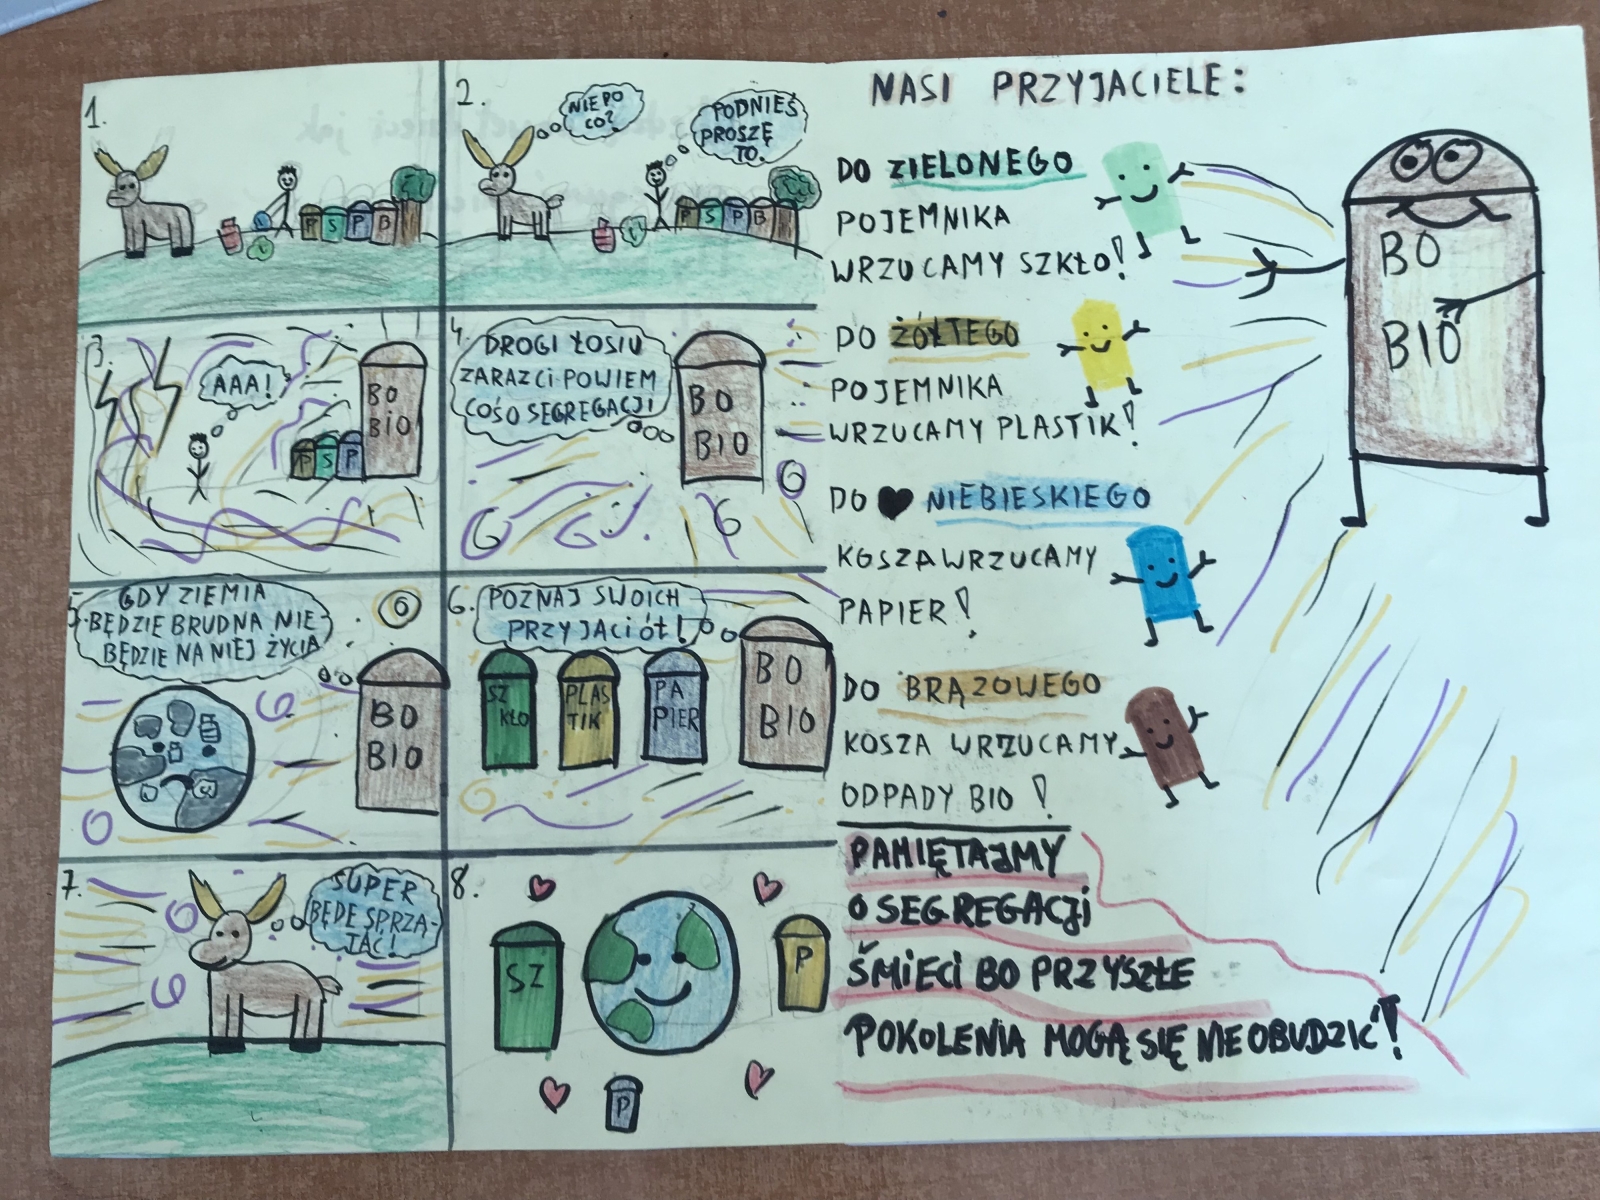 1.
P S P B
2.
NIE PO
CO?
PODNIEŚ
PROSZĘ
TO.
P S P B
3.
AAA!
BO
BIO
P S P
4.
DROGI ŁOSIU
ZARAZ CI POWIEM
COŚ O SEGREGACJI
BO
BIO
5.
GDY ZIEMIA
BĘDZIE BRUDNA NIE
BĘDZIE NA NIEJ ŻYCIA
BO
BIO
6.
POZNAJ SWOICH
PRZYJACIÓŁ!
SZ
KŁO
PLAS
TIK
PA
PIER
BO
BIO
7.
SUPER
BĘDE SPRZĄ-
TAĆ!
8.
SZ
P
P
NASI PRZYJACIELE:
DO ZIELONEGO
POJEMNIKA
WRZUCAMY SZKŁO!
DO ŻÓŁTEGO
POJEMNIKA
WRZUCAMY PLASTIK!
DO NIEBIESKIEGO
KOSZA WRZUCAMY
PAPIER!
DO BRĄZOWEGO
KOSZA WRZUCAMY
ODPADY BIO!
PAMIĘTAJMY
O SEGREGACJI
ŚMIECI BO PRZYSZŁE
POKOLENIA MOGĄ SIĘ NIE OBUDZIĆ!
BO
BIO